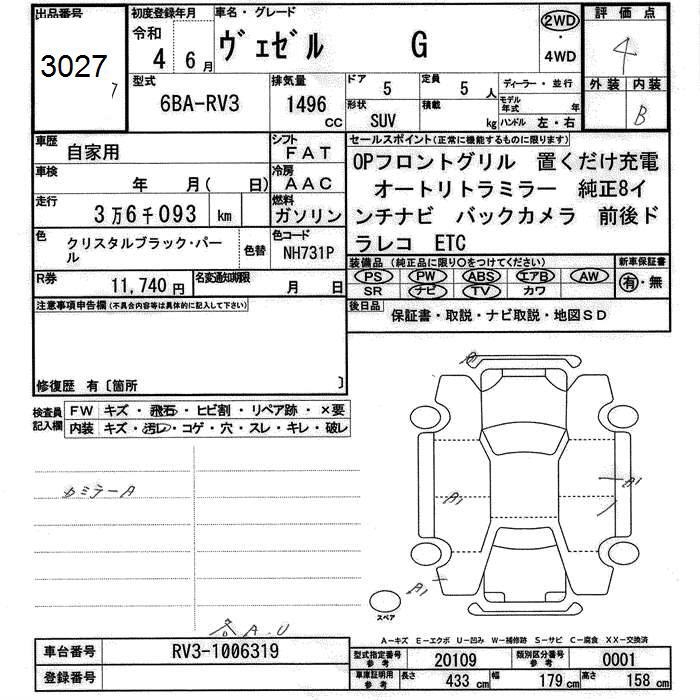 出品番号
3027
初度登録年月
令和
4年 6月
車名・グレード
ヴェゼル G
2WD
・
4WD
評価点
4
外装 内装
B
型式
6BA-RV3
排気量
1496
CC
ドア
5
定員
5人
形状
SUV
積載
kg
ディーラー・並行
モデル年式 年
ハンドル 左・右
車歴
自家用
シフト
FAT
車検
年 月( 日)
冷房
AAC
走行
3万6千093 km
燃料
ガソリン
色
クリスタルブラック・パール
色替
色コード
NH731P
R券
11,740円
名変通知期限
月 日
セールスポイント(正常に機能するものに限ります)
OPフロントグリル 置くだけ充電
オートリトラミラー 純正8イ
ンチナビ バックカメラ 前後ド
ラレコ ETC
装備品 (純正品に限り○をつけてください)
PS PW ABS エアB AW
SR ナビ TV カワ
新車保証書
有・無
後日品
保証書・取説・ナビ取説・地図SD
注意事項申告欄(不具合内容等は具体的に記入して下さい)
修復歴 有〔箇所 〕
検査員
記入欄
FW キズ・飛石・ヒビ割・リペア跡・×要
内装 キズ・汚レ・コゲ・穴・スレ・キレ・破レ
カミラーA
各A.U
A1
A1
A1
スペア
A-キズ E-エクボ U-凹み W-補修跡 S-サビ C-腐食 XX-交換済
車台番号
RV3-1006319
登録番号
型式指定番号
参考
20109
類別区分番号
参考
0001
車庫証明用
参考
長さ 433cm 幅 179cm 高さ 158cm